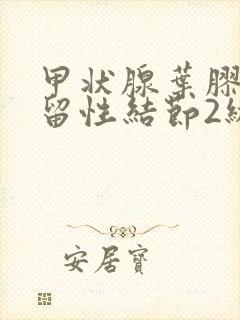 甲状腺葉膠
留性結節2級
安居寶